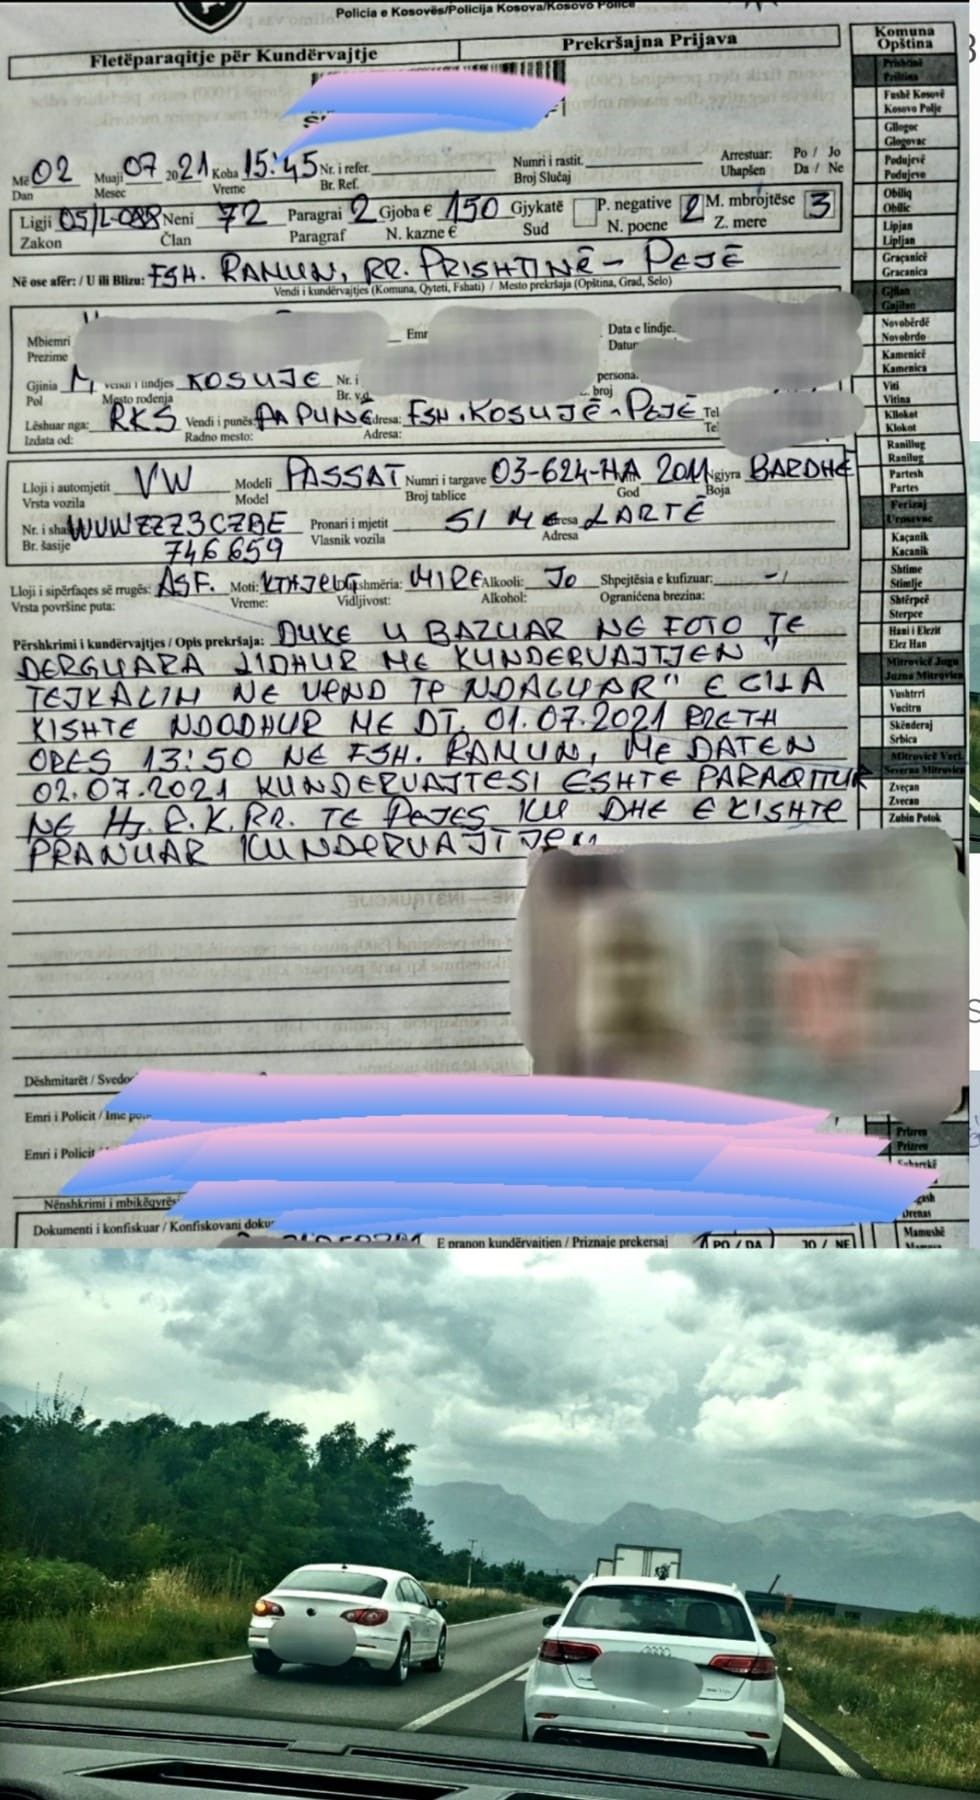 Policia e Kosovës/Policija Kosova/Kosovo Police
Fletëparaqitje për Kundërvajtje Prekršajna Prijava
Më 02 Muaji 07 2021 Koha 15:45 Nr. i refer. Numri i rastit. Arrestuar: Po / Jo
Dan Mesec Vreme Br. Ref. Broj Slučaj Uhapšen Da / Ne
Ligji 05/L-088 Neni 72 Paragrai 2 Gjoba € 150 Gjykatë P. negative 2 M. mbrojtëse 3
Zakon Član Paragraf N. kazne € Sud N. poene Z. mere
Në ose afër: / U ili Blizu: FSH. RANUN, RR. PRISHTINË - PEJË
Vendi i kundërvajtjes (Komuna, Qyteti, Fshati) / Mesto prekršaja (Opština, Grad, Selo)
Mbiemri Emr Data e lindje.
Prezime Datur
Gjinia M vendi i lindjes KOSUJE Nr. i persona.
Pol Mesto rodenja Br. v.d. broj
Lëshuar nga: RKS Vendi i punës PA PUNE dresa: FSH. KOSUJË - PEJË Tel
Izdata od: Radno mesto: Adresa: Tel
Lloji i automjetit VW Modeli PASSAT Numri i targave 03-624-HA 2011 Ngjyra BARDHË
Vrsta vozila Model Broj tablice God Boja
Nr. i sha WVWZZZ3CZBE Pronari i mjetit SI ME dresa LARTË
Br. šasije 746659 Vlasnik vozila Adresa
Lloji i sipërfaqes së rrugës: ASF. Moti: KTHJELLT shmëria: MIRE Alkooli: JO Shpejtësia e kufizuar: -/
Vrsta površine puta: Vreme: Vidljivost: Alkohol: Ograničena brezina:
Përshkrimi i kundërvajtjes / Opis prekršaja: DUKE U BAZUAR NE FOTO TE
DERGUARA LIDHUR ME KUNDERVAJTJEN "
TEJKALIM NE VEND TE NDALUAR" E CILA
KISHTE NDODHUR ME DT. 01.07.2021 RRETH
ORES 13:50 NE FSH. RANUN, ME DATEN
02.07.2021 KUNDERVAJTESI ESHTE PARAQITUR
NE Nj. R.K.RR. TE PEJES KU DHE E KISHTE
PRANUAR KUNDERVAJTJEN
Dëshmitarët / Svedo
Emri i Policit / Ime po
Emri i Policit
Nënshkrimi i mbikëqyrës
Dokumenti i konfiskuar / Konfiskovani doku
E pranon kundërvajtjen / Priznaje prekersaj PO / DA JO / NE
Komuna
Opština
Prishtinë
Priština
Fushë Kosovë
Kosovo Polje
Gllogoc
Glogovac
Podujevë
Podujevo
Obiliq
Obilic
Lipjan
Lipljan
Graçanicë
Gracanica
Gjilan
Gnjilan
Novobërdë
Novobrdo
Kamenicë
Kamenica
Viti
Vitina
Kllokot
Klokot
Ranillug
Ranilug
Partesh
Partes
Ferizaj
Urosevac
Kaçanik
Kacanik
Shtime
Stimlje
Shtërpcë
Sterpce
Hani i Elezit
Elez Han
Mitrovicë Jugu
Juzna Mitrovica
Vushtrri
Vucitrn
Skënderaj
Srbica
Mitrovicë Veri.
Severna Mitrovica
Zveçan
Zvecan
Zubin Potok
Prizren
Prizren
Suharekë
Mamushë